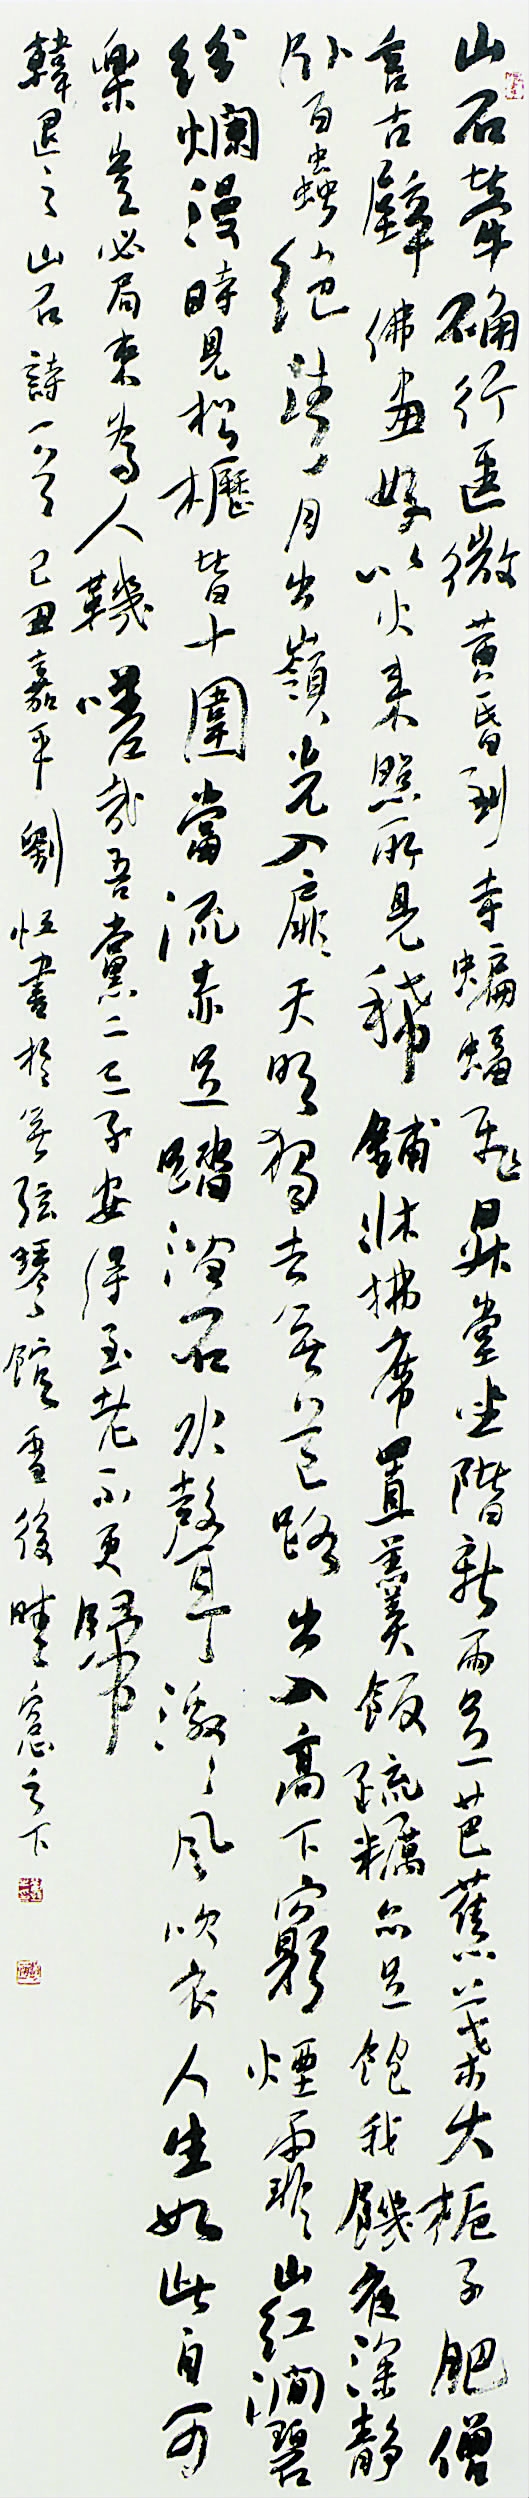 山石犖确行逕微黄昏到寺蝙蝠飛昇堂坐階新雨足芭蕉葉大梔子肥僧
言古壁佛畫好以火来照所見稀鋪牀拂席置羹飯疏糲亦足飽我饑夜深静
卧百蟲絶清月出嶺光入扉天明獨去無道路出入高下窮煙霏山紅澗碧
紛爛漫時見松櫪皆十圍當流赤足踏澗石水聲激激風吹衣人生如此自可
樂豈必局束為人鞿嗟哉吾黨二三子安得至老不更歸
韓退之山石詩一首己丑嘉平劉恒書於無弦琴館雪後晴窓之下